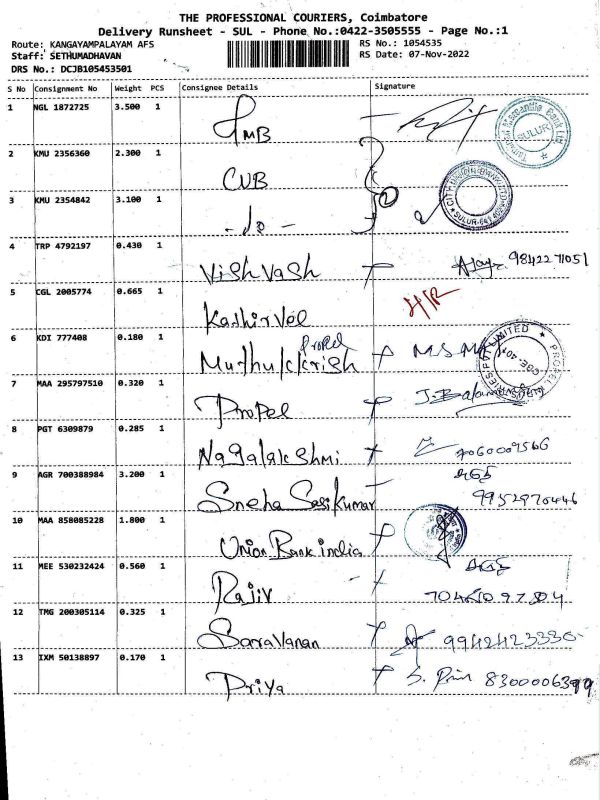 THE PROFESSIONAL COURIERS, Coimbatore
Delivery Runsheet - SUL - Phone No.:0422-3505555 - Page No.:1
Route: KANGAYAMPALAYAM AFS RS No.: 1054535
Staff: SETHUMADHAVAN RS Date: 07-Nov-2022
DRS No.: DCJB105453501
S No Consignment No Weight PCS Consignee Details Signature
1 NGL 1872725 3.500 1 TMB
SULUR
2 KMU 2356360 2.300 1 CUB
3 KMU 2354842 3.100 1 - do - 2
SULUR-641 402
4 TRP 4792197 0.430 1 Vishvash Ajay 9842271051
5 CGL 2005774 0.665 1 Kathirvel
6 KDI 777408 0.180 1 Muthukrish Propel
7 MAA 295797510 0.320 1 Propel
8 PGT 6309879 0.285 1 Nagalakshmi
9 AGR 700388984 3.200 1 Sneha Sasikumar 9952970446
10 MAA 858085228 1.800 1 Union Bank india
11 MEE 530232424 0.560 1 Rajiv
12 TMG 200305114 0.325 1 Saravanan 9942423330
13 IXM 50138897 0.170 1 Priya 8300006399